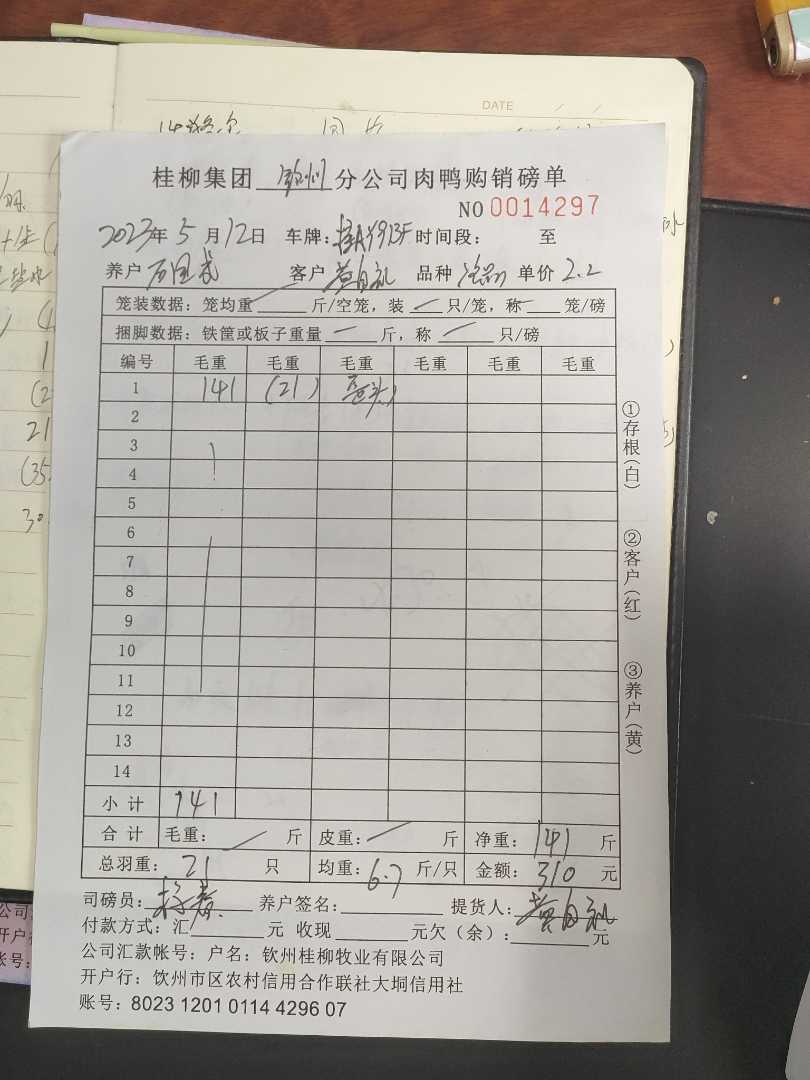 DATE / /
桂柳集团 钦州 分公司肉鸭购销磅单
NO 0014297
2023年 5 月 12日 车牌: 时间段: 至
养户 客户 黄自礼 品种 单价 2.2
笼装数据: 笼均重 斤/空笼, 装 一 只/笼, 称 一 笼/磅
捆脚数据: 铁筐或板子重量 一 斤, 称 一 只/磅
编号 毛重 毛重 毛重 毛重 毛重 毛重
1 141 (21)
2
3
4
5
6
7
8
9
10
11
12
13
14
小 计 141
合 计 毛重: 斤 皮重: 斤 净重: 141 斤
总羽重: 21 只 均重: 6.7 斤/只 金额: 310 元
司磅员: 养户签名: 提货人: 黄自礼
付款方式: 汇 元 收现 元欠(余): 元
公司汇款帐号: 户名: 钦州桂柳牧业有限公司
开户行: 钦州市区农村信用合作联社大垌信用社
账号: 8023 1201 0114 4296 07
①存根(白)
②客户(红)
③养户(黄)
公司
开户行
账号: